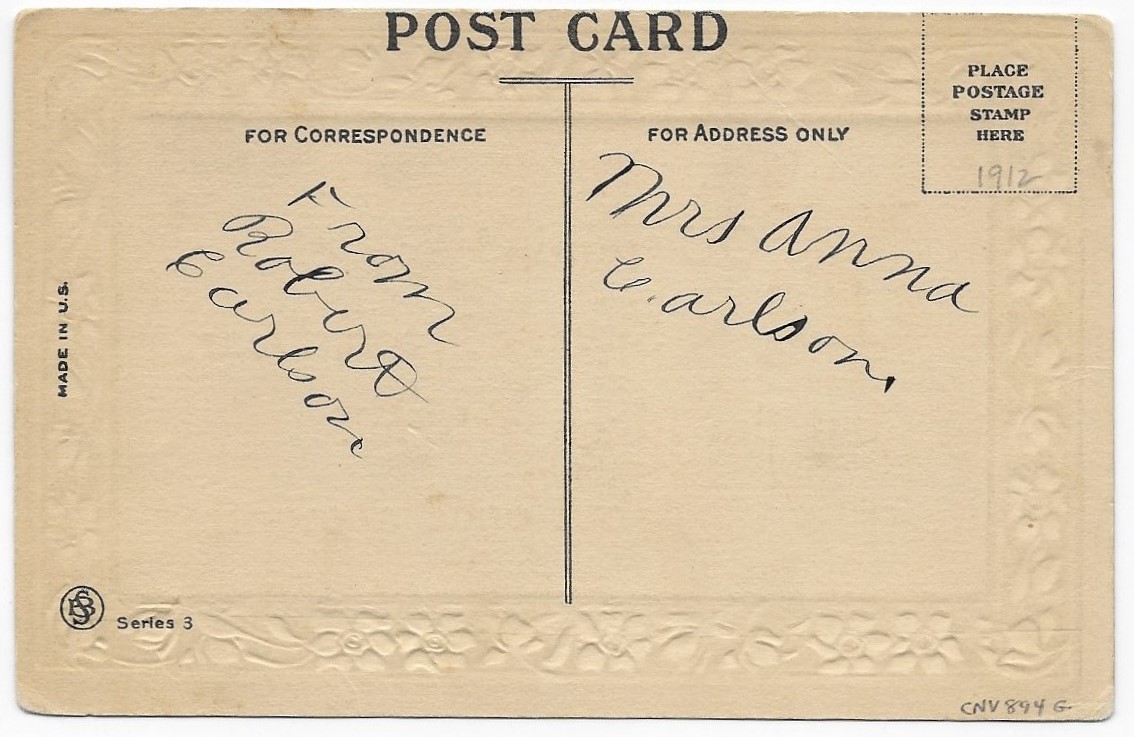 POST CARD
PLACE
POSTAGE
STAMP
HERE
1912
FOR CORRESPONDENCE
FOR ADDRESS ONLY
From
Robert
Carlson
Mrs Anna
Carlson.
MADE IN U.S.
Series 3
CNV894 G